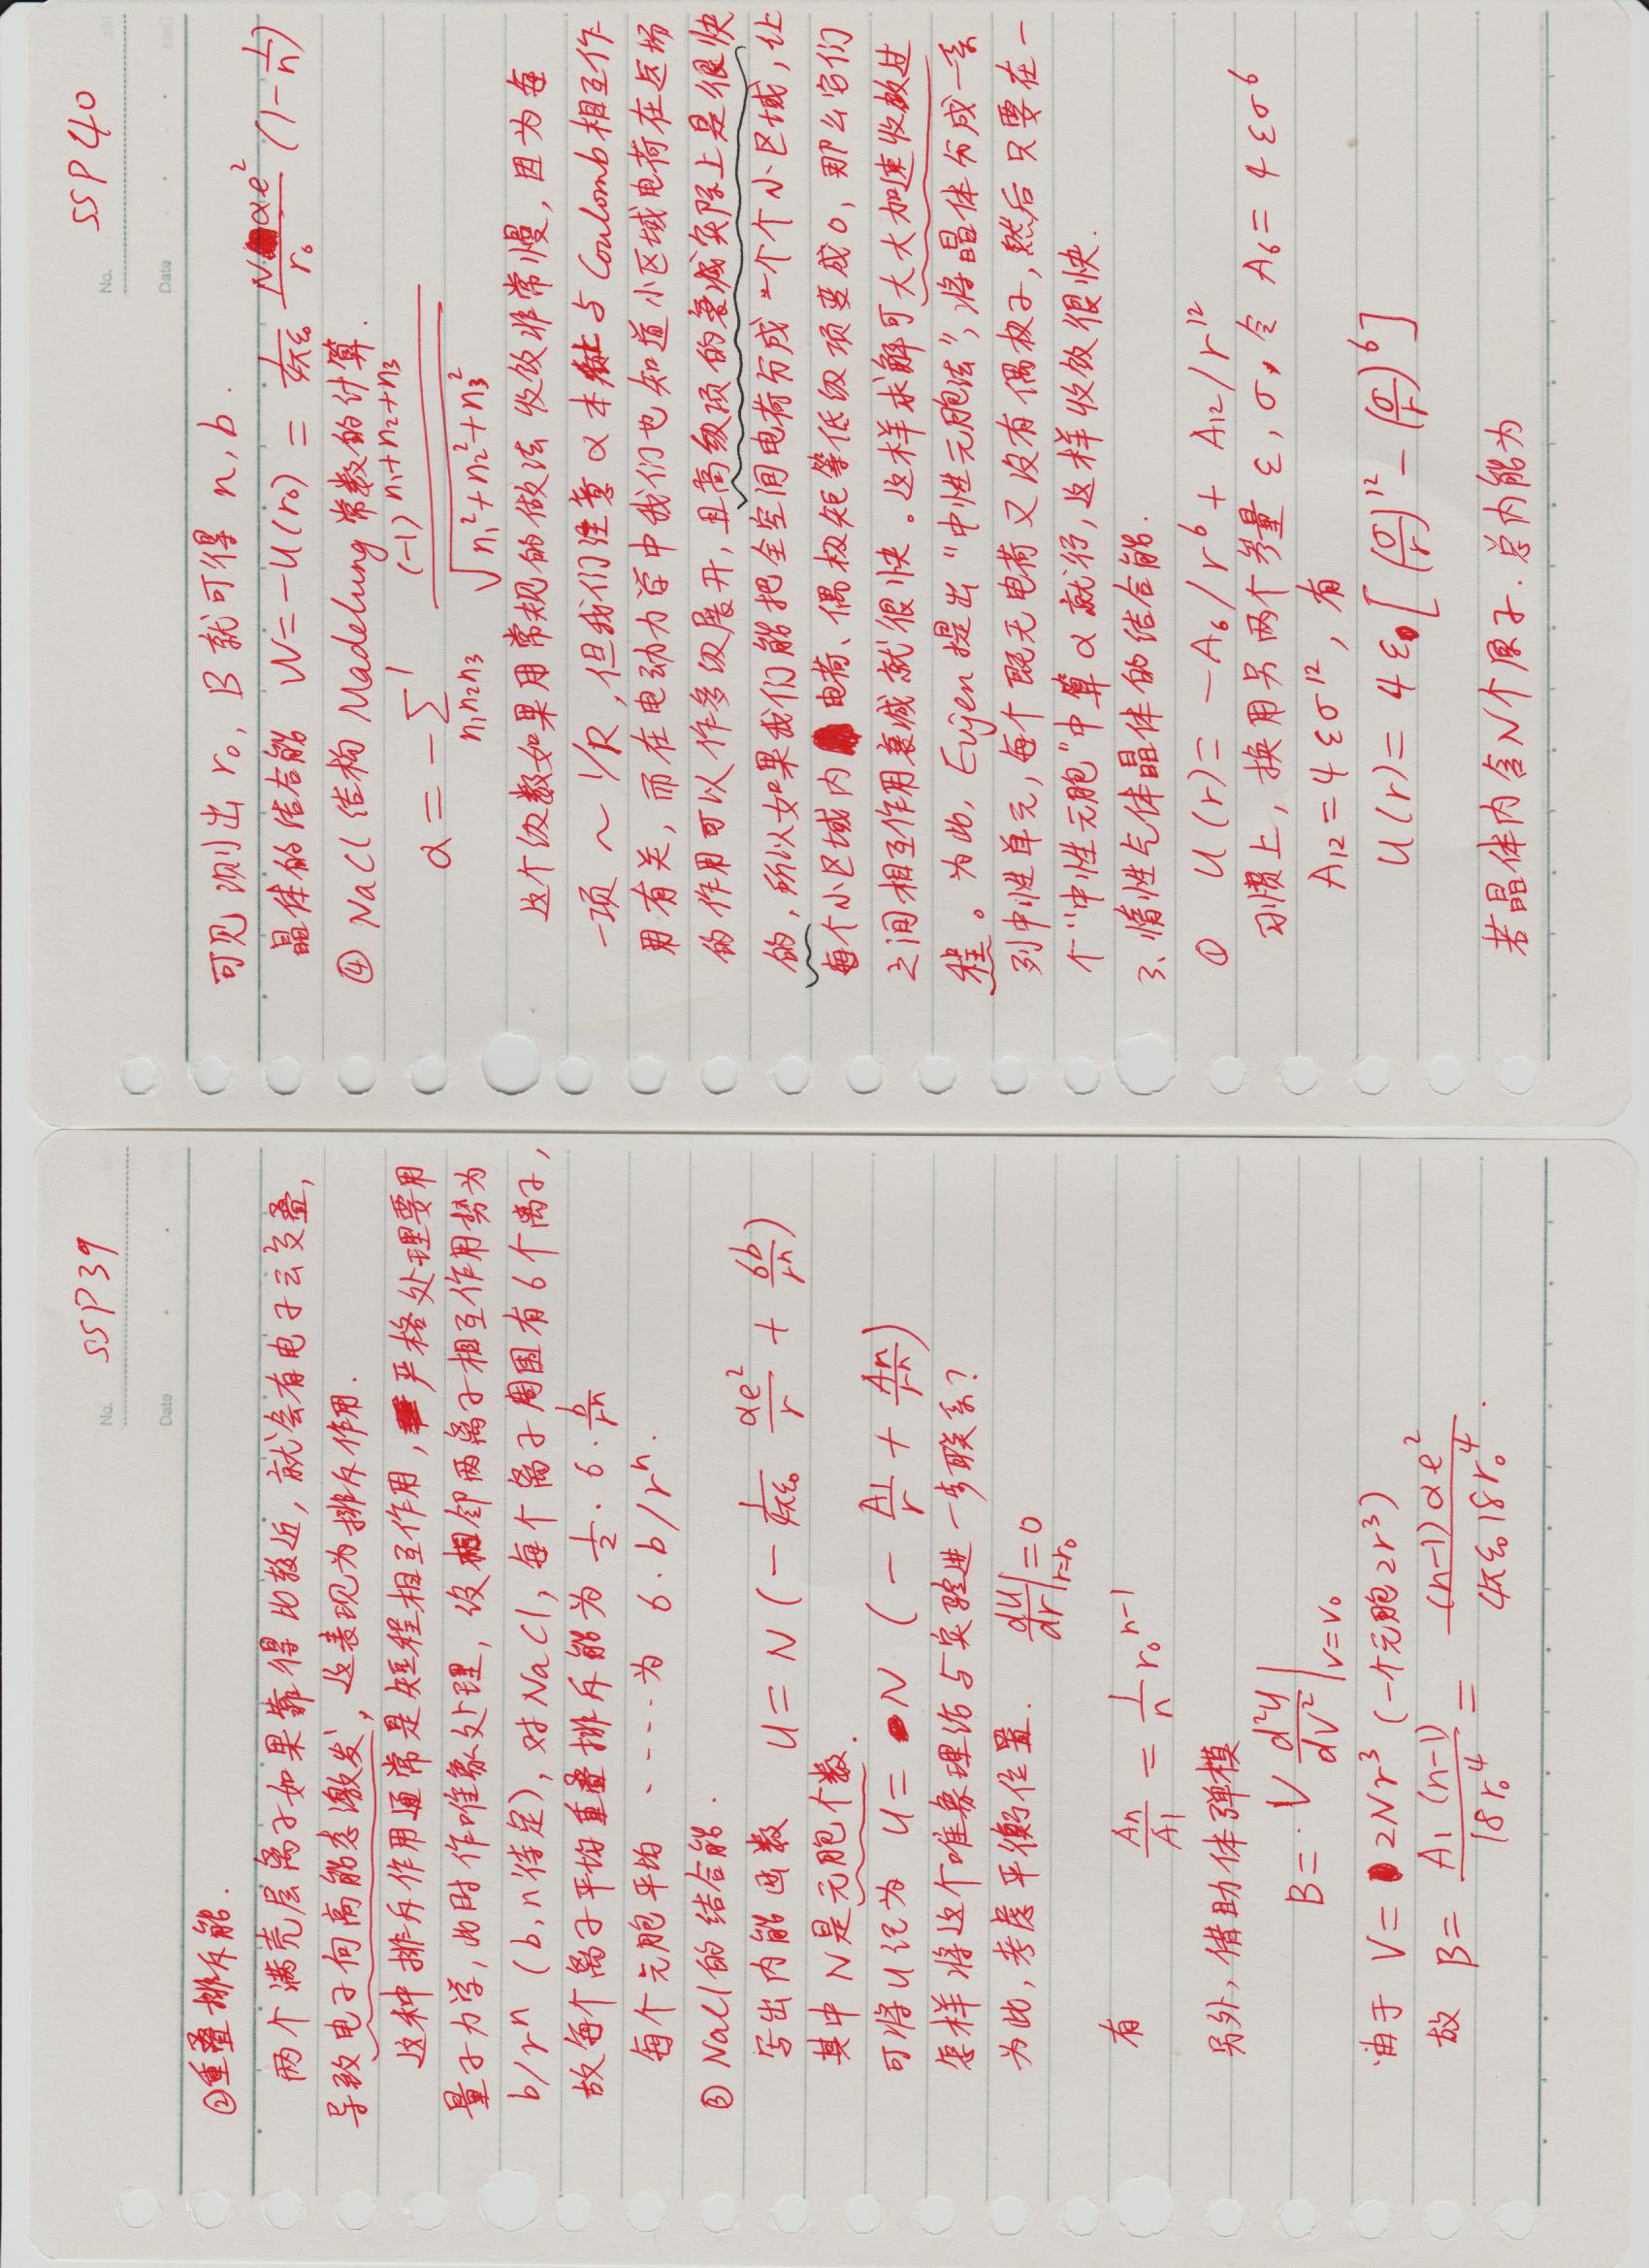 SSP39
No.
Date
②重叠排斥能.
两个满壳层离子如果靠得比较近, 就会有电子云交叠,
导致电子向高能态激发, 这表现为排斥作用.
这种排斥作用通常是短程相互作用, 严格处理要用
量子力学, 此时作唯象处理, 设相邻两离子相互作用势为
b/rⁿ (b, n待定), 对NaCl, 每个离子周围有6个离子,
故每个离子平均重叠排斥能为 1/2 · 6 · b/rⁿ
每个元胞平均 ····· 为 6·b/rⁿ.
③ NaCl的结合能.
写出内能函数 U = N (- 1/4πε₀ αe²/r + 6b/rⁿ)
其中N是元胞个数.
可将U记为 U = N (- A₁/r + Aₙ/rⁿ)
怎样将这个唯象理论与实验进一步联系?
为此, 考虑平衡位置. dU/dr|r=r₀ = 0
有 Aₙ/A₁ = 1/n r₀ⁿ⁻¹
另外, 借助体弹模
B = V d²U/dV² |V=V₀
由于 V = 2Nr³ (一个元胞2r³)
故 B = A₁(n-1)/18r₀⁴ = (n-1)αe²/4πε₀18r₀⁴.
SSP40
No.
Date
可见测出 r₀, B 就可得 n, b.
晶体的结合能 W = -U(r₀) = 1/4πε₀ Nαe²/r₀ (1-1/n)
④ NaCl结构Madelung常数的计算.
α = -Σ′n₁n₂n₃ (-1)ⁿ¹⁺ⁿ²⁺ⁿ³/√n₁²+n₂²+n₃²
这个级数如果用常规的做法收敛非常慢, 因为每
一项 ~ 1/R, 但我们注意α本就与Coulomb相互作
用有关, 而在电动力学中我们也知道小区域电荷在远场
的作用可以作多级展开, 且高级项的衰减实际上是很快
的, 所以如果我们能把全空间电荷分成一个个小区域, 让
每个小区域内电荷、偶极矩等低级项变成0, 那么它们
之间相互作用衰减就很快。这样求解可大大加速收敛过
程。为此, Evjen提出“中性元胞法”, 将晶体分成一系
列中性单元, 每个既无电荷又没有偶极子, 然后只要在一
个“中性元胞”中算α就行, 这样收敛很快.
3、惰性气体晶体的结合能.
① U(r) = -A₆/r⁶ + A₁₂/r¹²
习惯上, 换用另两个参量 ε, σ, 令 A₆ = 4εσ⁶
A₁₂ = 4εσ¹², 有
U(r) = 4ε[(σ/r)¹² - (σ/r)⁶]
若晶体内含N个原子. 总内能为